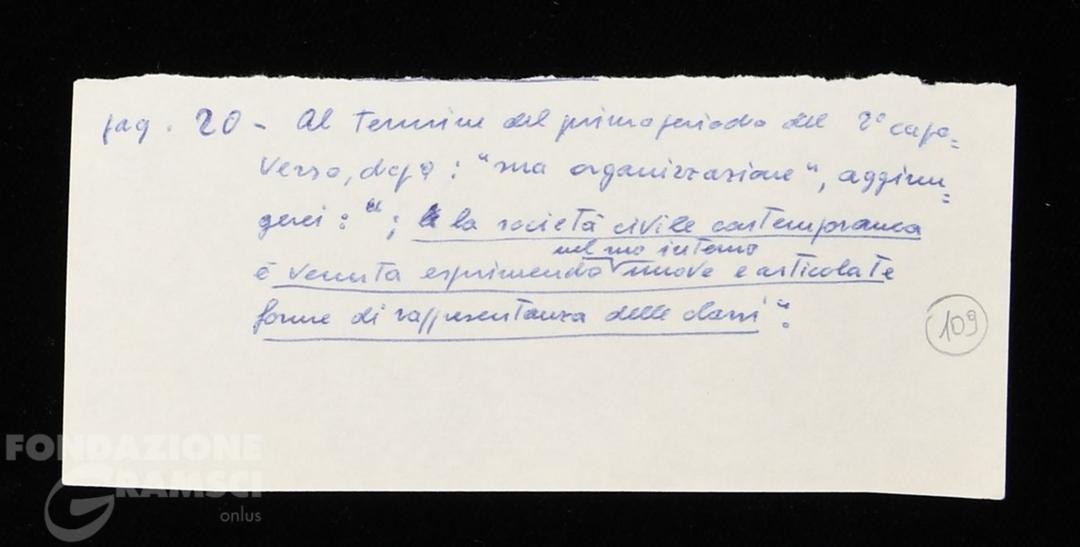 pag. 20 - Al termine del primo periodo del 2° capo=
verso, dopo: "sua organizzazione", aggiun=
gerci: "; la società civile contemporanea
nel suo interno
è venuta esprimendo nuove e articolate
forme di rappresentanza delle classi".
109
FONDAZIONE
GRAMSCI
onlus